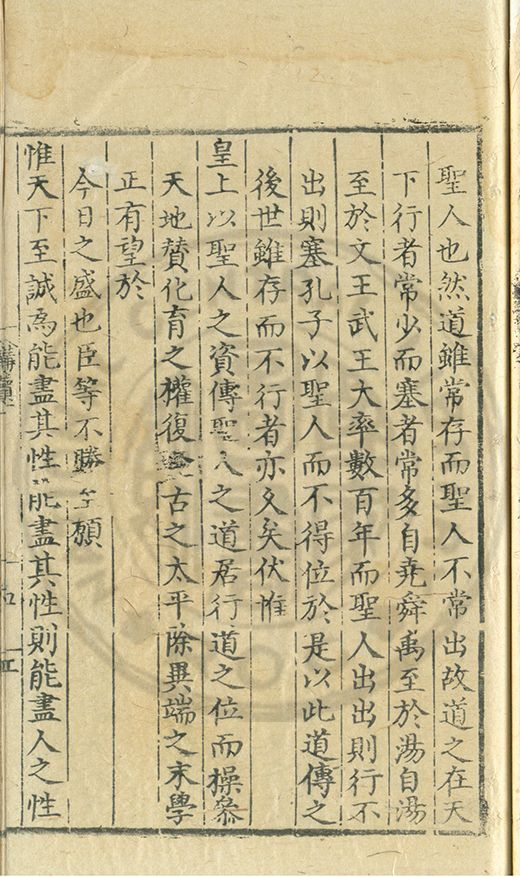 聖人也然道雖常存而聖人不常出故道之在天
下行者常少而塞者常多自堯舜禹至於湯自湯
至於文王武王大率數百年而聖人出出則行不
出則塞孔子以聖人而不得位於是以此道傳之
後世雖存而不行者亦久矣伏惟
皇上以聖人之資傳聖人之道居行道之位而操叅
天地贊化育之權復古之太平除異端之末學
正有望於
今日之盛也臣等不勝至願
惟天下至誠爲能盡其性能盡其性則能盡人之性